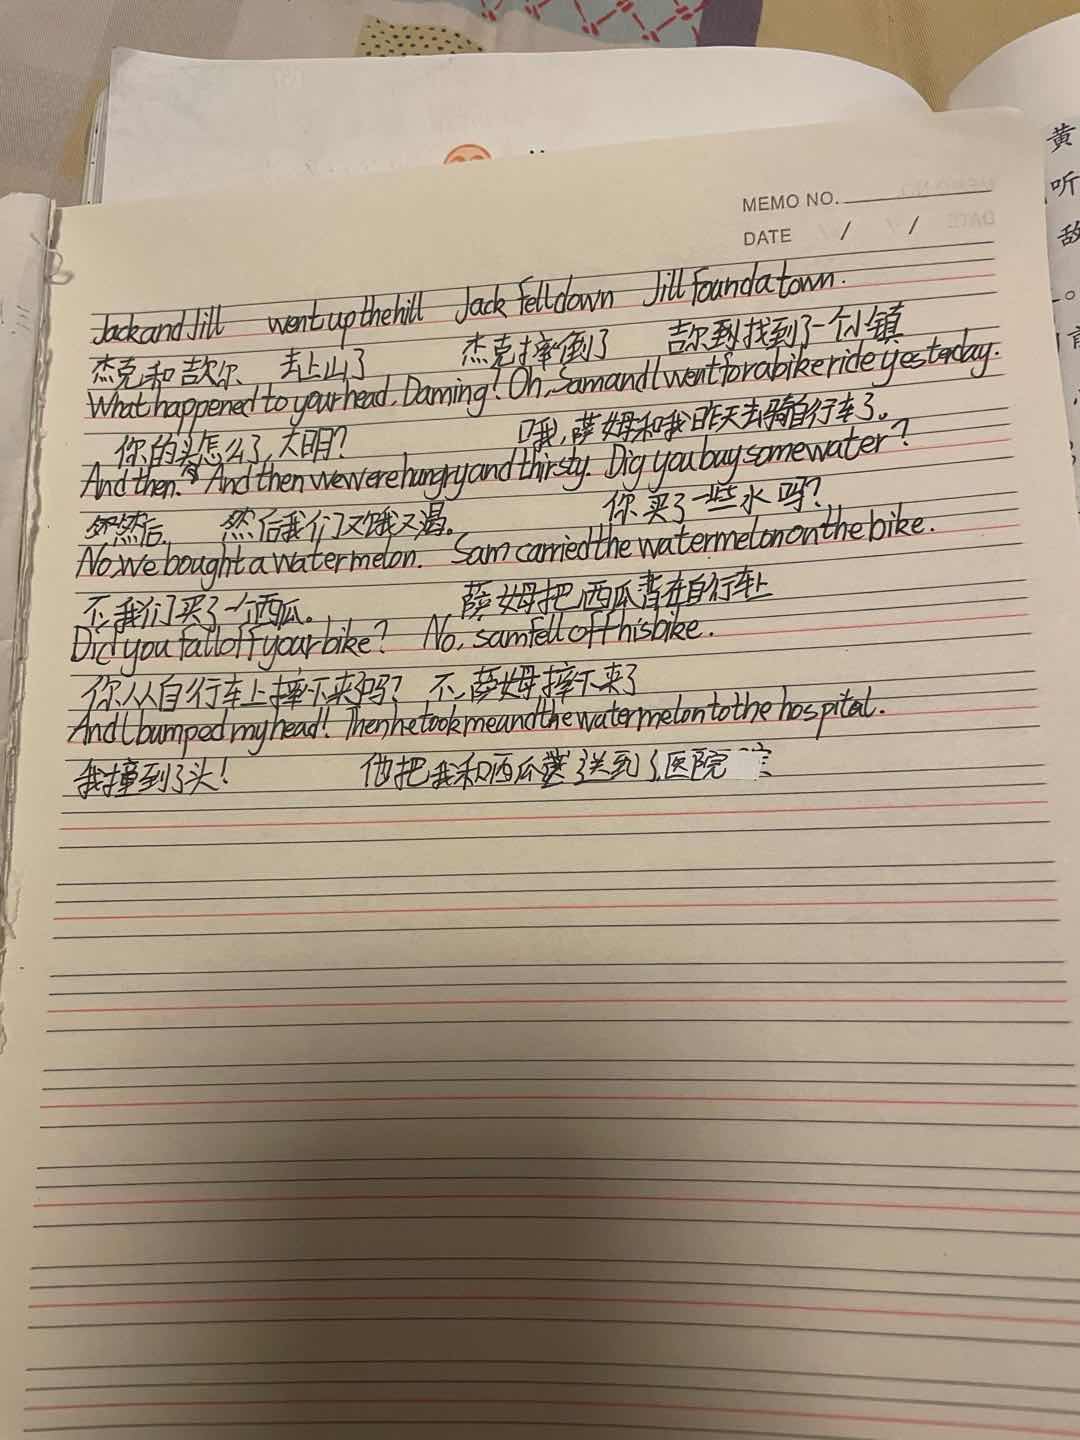 黄
听
敌
MEMO NO.
DATE / /
Jack and Jill went up the hill Jack fell down Jill found a town.
杰克和吉尔 去上山了 杰克摔倒了 吉尔到找到了一个小镇
What happened to your head, Daming! Oh, Sam and I went for a bike ride yesterday.
你的头怎么了,大明? 哦,萨姆和我昨天去骑自行车了。
And then. And then we were hungry and thirsty. Dig you buy some water?
然后。 然后我们又饿又渴。 你买了一些水吗?
No, we bought a watermelon. Sam carried the watermelon on the bike.
不,我们买了一个西瓜。 萨姆把西瓜背在自行车上
Did you fall off your bike? No, sam fell off his bike.
你从自行车上摔下来吗? 不,萨姆摔下来了
And I bumped my head! Then he took me and the watermelon to the hospital.
我撞到了头! 他把我和西瓜送到了医院